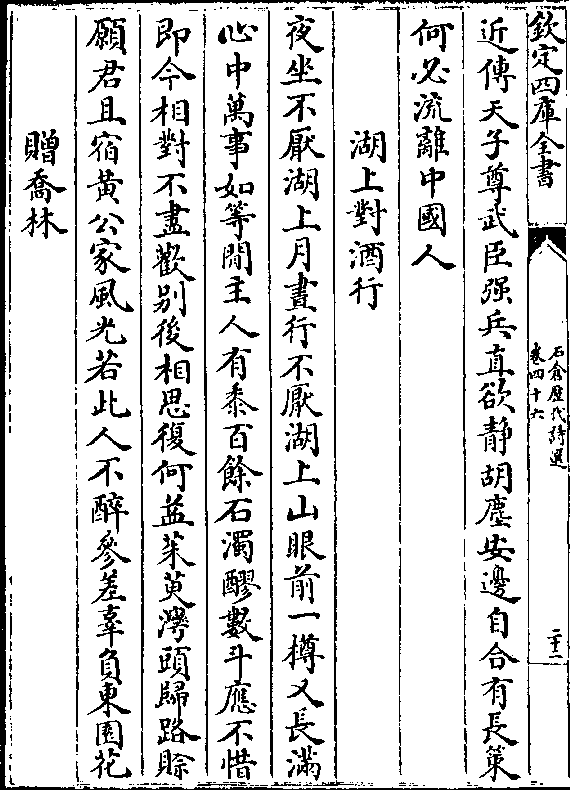 欽定四庫全書
石倉歷代詩選
卷四十六
二十二
近傳天子尊武臣强兵直欲静胡塵安邊自合有長策
何必流離中國人
湖上對酒行
夜坐不厭湖上月晝行不厭湖上山眼前一樽又長滿
心中萬事如等閒主人有黍百餘石濁醪數斗應不惜
即今相對不盡歡别後相思復何益茱萸灣頭歸路賒
願君且宿黄公家風光若此人不醉參差辜負東園花
贈喬林